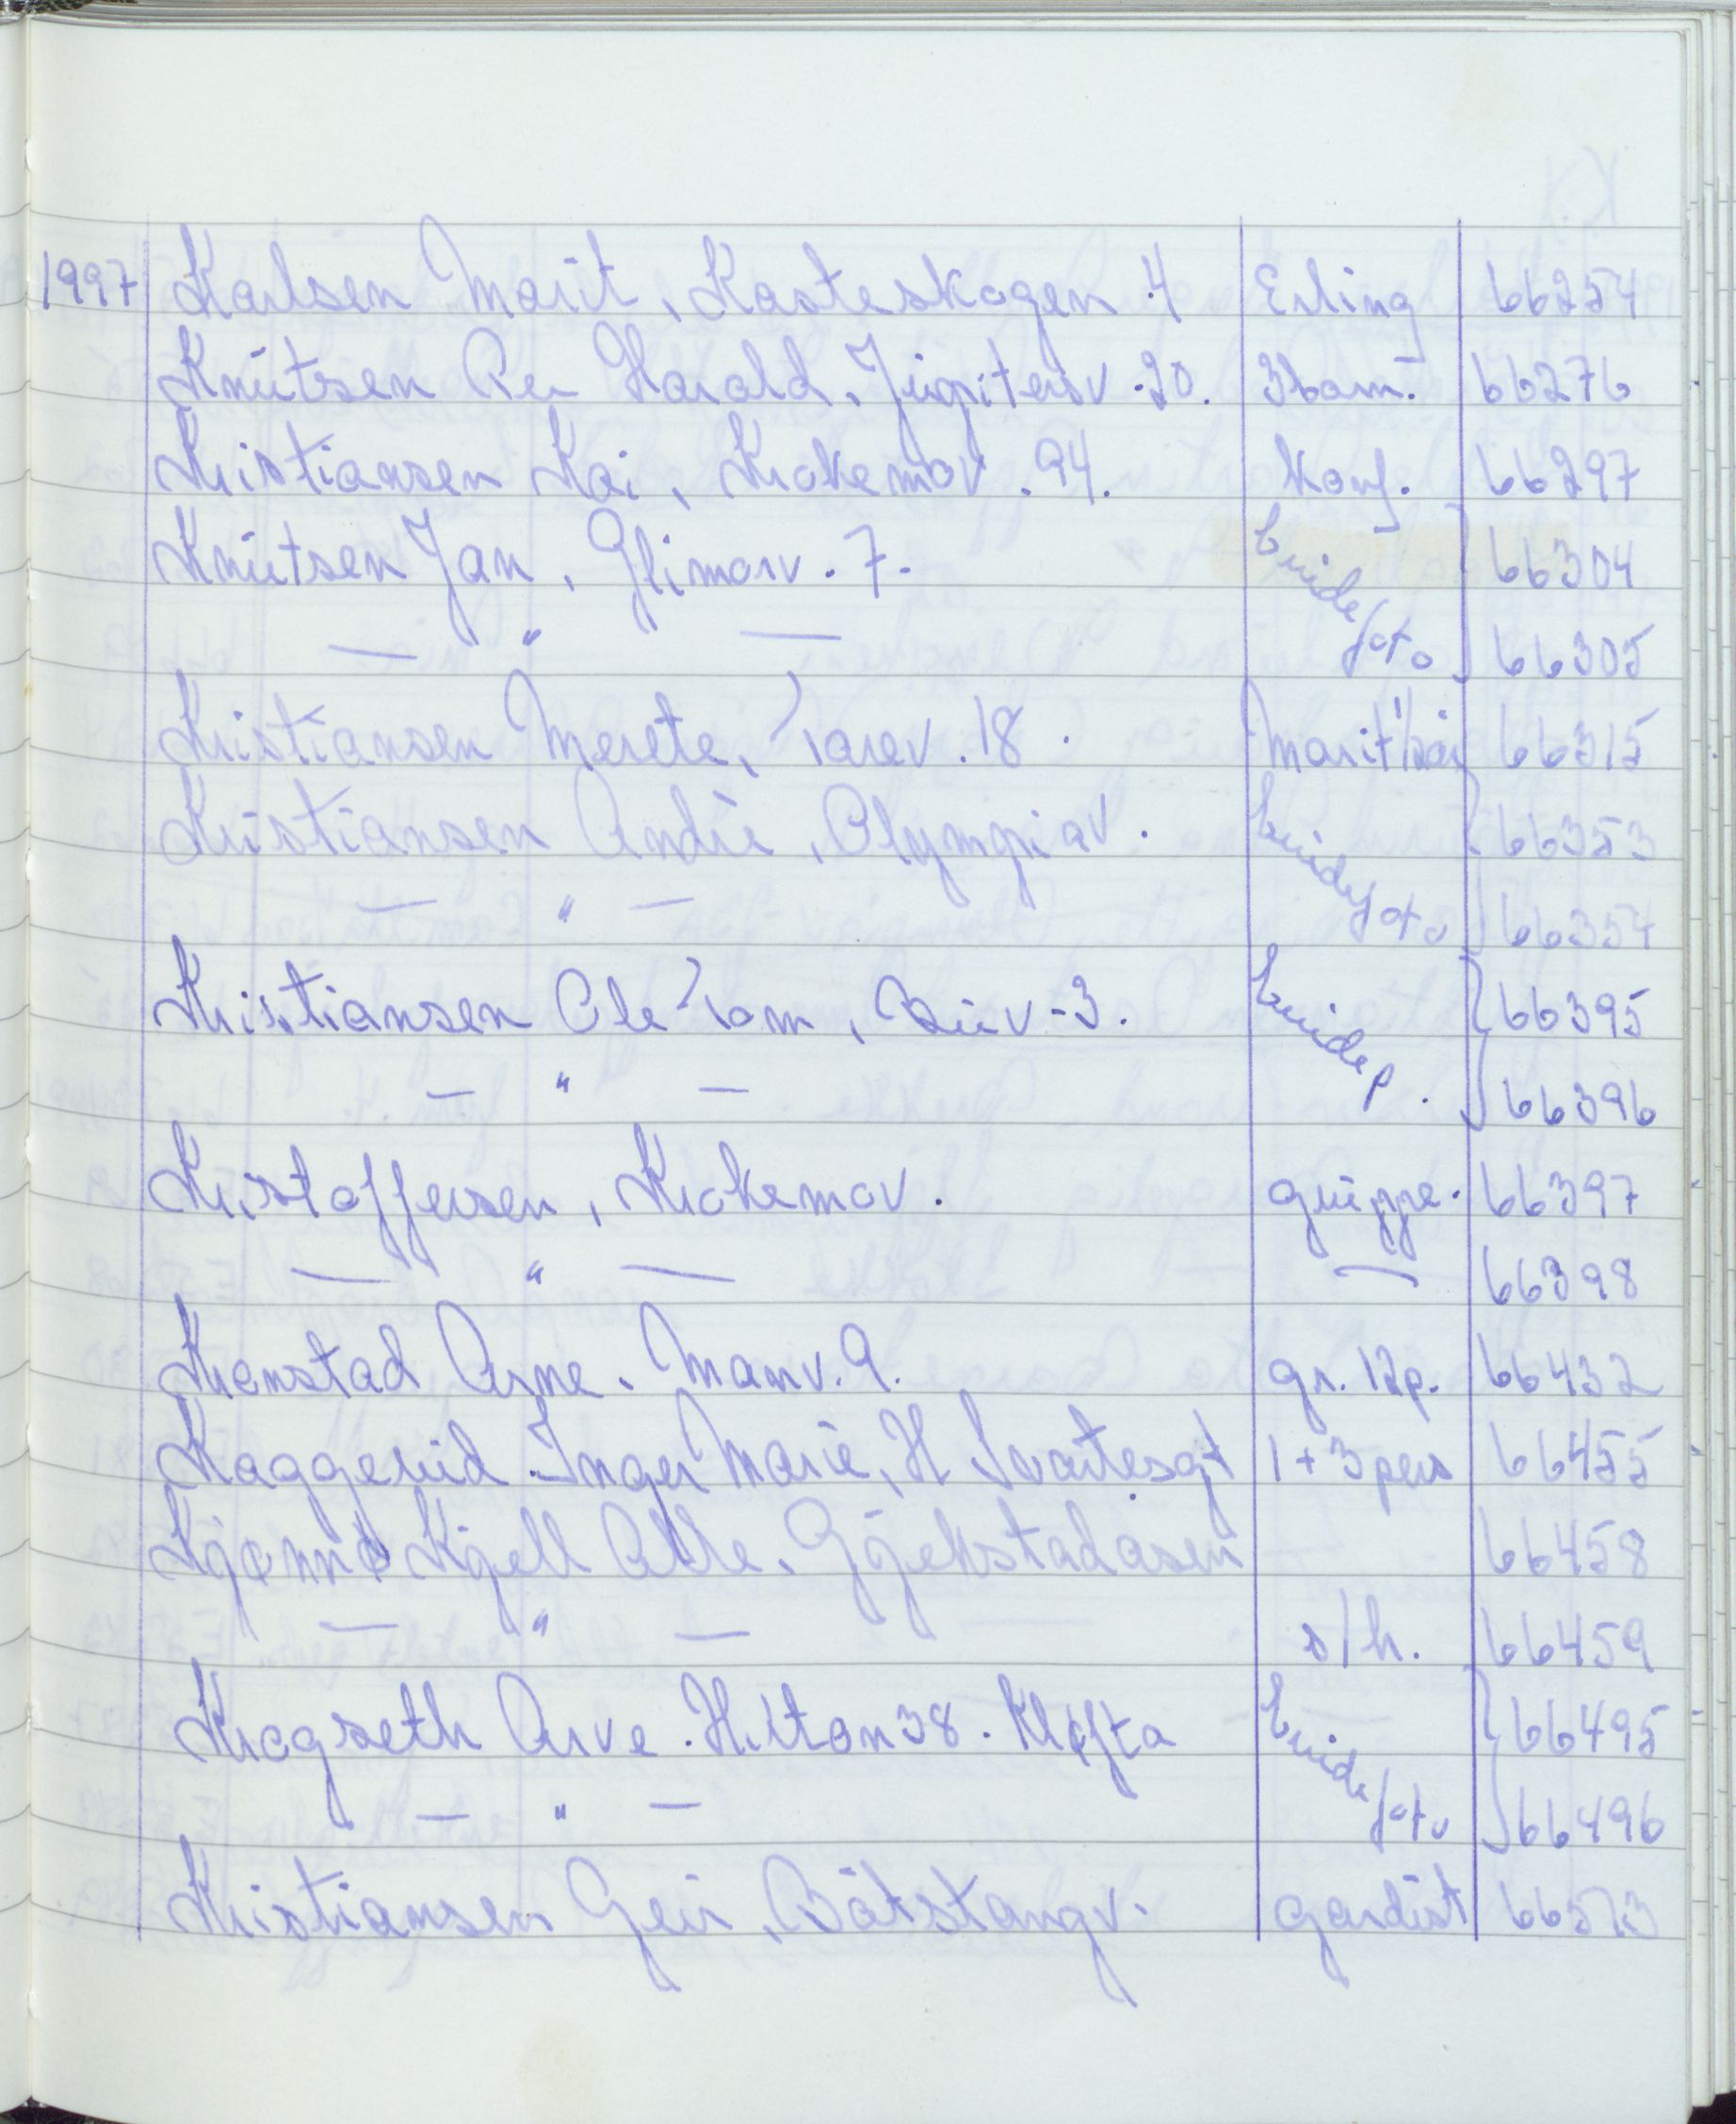 1997 Karlsen Marit, Kasteskogen 4 Erling 66254
Knutsen Per Harald, Jupiterv. 20. 3 barn. 66276
Kristiansen Kai, Krokemov. 94. konf. 66297
Knutsen Jan, Glimmerv. 7. brude 66304
— " — foto 66305
Kristiansen Merete, Torev. 18. 66315
Kristiansen André, Olympiav. brude 66353
— " — foto 66354
Kristiansen Ole Tom, 3. brudep. 66395
— " — 66396
Kristoffersen, Krokemov. gruppe. 66397
— " — — 66398
Kronstad Arne. 9. gr. 12p. 66432
Kaggerud Inger Marie, H Svartesgt 1+3 pers 66455
Kjønnø Kjell Atle. Gjekstadåsen 66458
— " — s/h. 66459
Krogseth Arve. Hilton 38. Kløfta brude 66495
— " — foto 66496
Kristiansen Geir, Båtstangv. gardist 66573